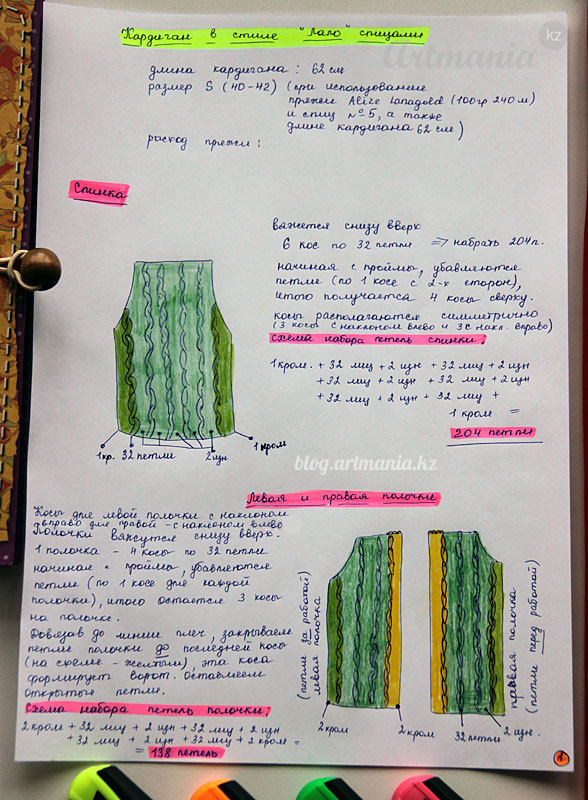 Artmania kz
Кардиган в стиле "Лало" спицами
длина кардигана: 62 см
размер S (40-42) (при использовании
пряжи Alize Lanagold (100гр 240м)
и спиц №5, а также
длине кардигана 62 см)
расход пряжи:
Спинка
вяжется снизу вверх
6 кос по 32 петли => набрать 204п.
начиная с проймы, убавляются
петли (по 1 косе с 2-х сторон),
итого получается 4 косы сверху.
косы располагаются симметрично
(3 косы с наклоном влево и 3 с накл. вправо)
схема набора петель спинки:
1 кром. + 32 лиц + 2 изн + 32 лиц + 2 изн
+ 32 лиц + 2 изн + 32 лиц + 2 изн
+ 32 лиц + 2 изн + 32 лиц +
1 кром =
204 петли
1кр. 32 петли 2изн 1 кром
blog.artmania.kz
Левая и правая полочки
Косы для левой полочки с наклоном
вправо для правой - с наклоном влево
Полочки вяжутся снизу вверх.
1 полочка - 4 косы по 32 петли
начиная с проймы, убавляются
петли (по 1 косе для каждой
полочки), итого остается 3 косы
на полочке.
Довязав до линии плеч, закрываем
петли полочки до последней косы
(на схеме - желтым), эта коса
формирует ворот. Оставляем
открытые петли.
схема набора петель полочки:
2 кром + 32 лиц + 2 изн + 32 лиц + 2 изн
+ 32 лиц + 2 изн + 32 лиц + 2 кром =
= 138 петель
(петли за работой)
левая полочка
правая полочка
(петли перед работой)
2 кром 2 кром 32 петли 2 изн.
1